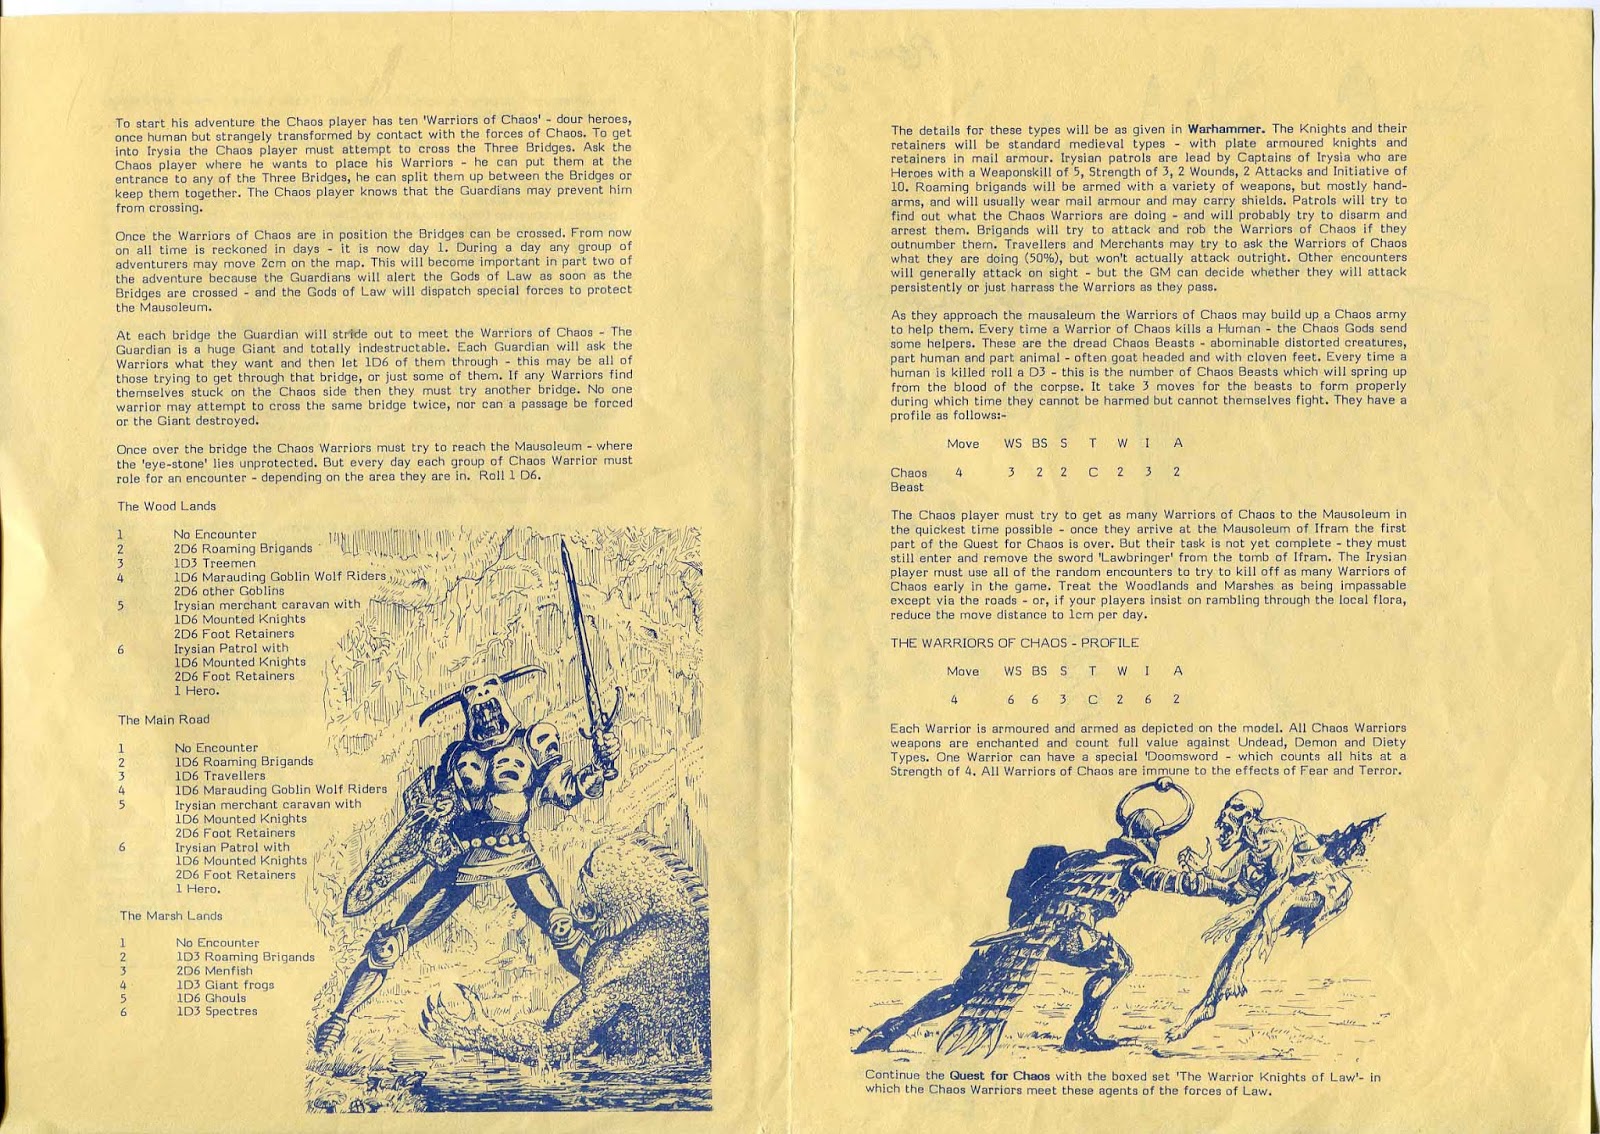 To start his adventure the Chaos player has ten 'Warriors of Chaos' - dour heroes,
once human but strangely transformed by contact with the forces of Chaos. To get
into Irysia the Chaos player must attempt to cross the Three Bridges. Ask the
Chaos player where he wants to place his Warriors - he can put them at the
entrance to any of the Three Bridges, he can split them up between the Bridges or
keep them together. The Chaos player knows that the Guardians may prevent him
from crossing.
Once the Warriors of Chaos are in position the Bridges can be crossed. From now
on all time is reckoned in days - it is now day 1. During a day any group of
adventurers may move 2cm on the map. This will become important in part two of
the adventure because the Guardians will alert the Gods of Law as soon as the
Bridges are crossed - and the Gods of Law will dispatch special forces to protect
the Mausoleum.
At each bridge the Guardian will stride out to meet the Warriors of Chaos - The
Guardian is a huge Giant and totally indestructable. Each Guardian will ask the
Warriors what they want and then let 1D6 of them through - this may be all of
those trying to get through that bridge, or just some of them. If any Warriors find
themselves stuck on the Chaos side then they must try another bridge. No one
warrior may attempt to cross the same bridge twice, nor can a passage be forced
or the Giant destroyed.
Once over the bridge the Chaos Warriors must try to reach the Mausoleum - where
the 'eye-stone' lies unprotected. But every day each group of Chaos Warrior must
role for an encounter - depending on the area they are in. Roll 1 D6.
The Wood Lands
1 No Encounter
2 2D6 Roaming Brigands
3 1D3 Treemen
4 1D6 Marauding Goblin Wolf Riders
2D6 other Goblins
5 Irysian merchant caravan with
1D6 Mounted Knights
2D6 Foot Retainers
6 Irysian Patrol with
1D6 Mounted Knights
2D6 Foot Retainers
1 Hero.
The Main Road
1 No Encounter
2 1D6 Roaming Brigands
3 1D6 Travellers
4 1D6 Marauding Goblin Wolf Riders
5 Irysian merchant caravan with
1D6 Mounted Knights
2D6 Foot Retainers
6 Irysian Patrol with
1D6 Mounted Knights
2D6 Foot Retainers
1 Hero.
The Marsh Lands
1 No Encounter
2 1D3 Roaming Brigands
3 2D6 Menfish
4 1D3 Giant frogs
5 1D6 Ghouls
6 1D3 Spectres
The details for these types will be as given in Warhammer. The Knights and their
retainers will be standard medieval types - with plate armoured knights and
retainers in mail armour. Irysian patrols are lead by Captains of Irysia who are
Heroes with a Weaponskill of 5, Strength of 3, 2 Wounds, 2 Attacks and Initiative of
10. Roaming brigands will be armed with a variety of weapons, but mostly hand-
arms, and will usually wear mail armour and may carry shields. Patrols will try to
find out what the Chaos Warriors are doing - and will probably try to disarm and
arrest them. Brigands will try to attack and rob the Warriors of Chaos if they
outnumber them. Travellers and Merchants may try to ask the Warriors of Chaos
what they are doing (50%), but won't actually attack outright. Other encounters
will generally attack on sight - but the GM can decide whether they will attack
persistently or just harrass the Warriors as they pass.
As they approach the mausaleum the Warriors of Chaos may build up a Chaos army
to help them. Every time a Warrior of Chaos kills a Human - the Chaos Gods send
some helpers. These are the dread Chaos Beasts - abominable distorted creatures,
part human and part animal - often goat headed and with cloven feet. Every time a
human is killed roll a D3 - this is the number of Chaos Beasts which will spring up
from the blood of the corpse. It take 3 moves for the beasts to form properly
during which time they cannot be harmed but cannot themselves fight. They have a
profile as follows:-
Move WS BS S T W I A
Chaos 4 3 2 2 C 2 3 2
Beast
The Chaos player must try to get as many Warriors of Chaos to the Mausoleum in
the quickest time possible - once they arrive at the Mausoleum of Ifram the first
part of the Quest for Chaos is over. But their task is not yet complete - they must
still enter and remove the sword 'Lawbringer' from the tomb of Ifram. The Irysian
player must use all of the random encounters to try to kill off as many Warriors of
Chaos early in the game. Treat the Woodlands and Marshes as being impassable
except via the roads - or, if your players insist on rambling through the local flora,
reduce the move distance to 1cm per day.
THE WARRIORS OF CHAOS - PROFILE
Move WS BS S T W I A
4 6 6 3 C 2 6 2
Each Warrior is armoured and armed as depicted on the model. All Chaos Warriors
weapons are enchanted and count full value against Undead, Demon and Diety
Types. One Warrior can have a special 'Doomsword - which counts all hits at a
Strength of 4. All Warriors of Chaos are immune to the effects of Fear and Terror.
Continue the Quest for Chaos with the boxed set 'The Warrior Knights of Law'- in
which the Chaos Warriors meet these agents of the forces of Law.